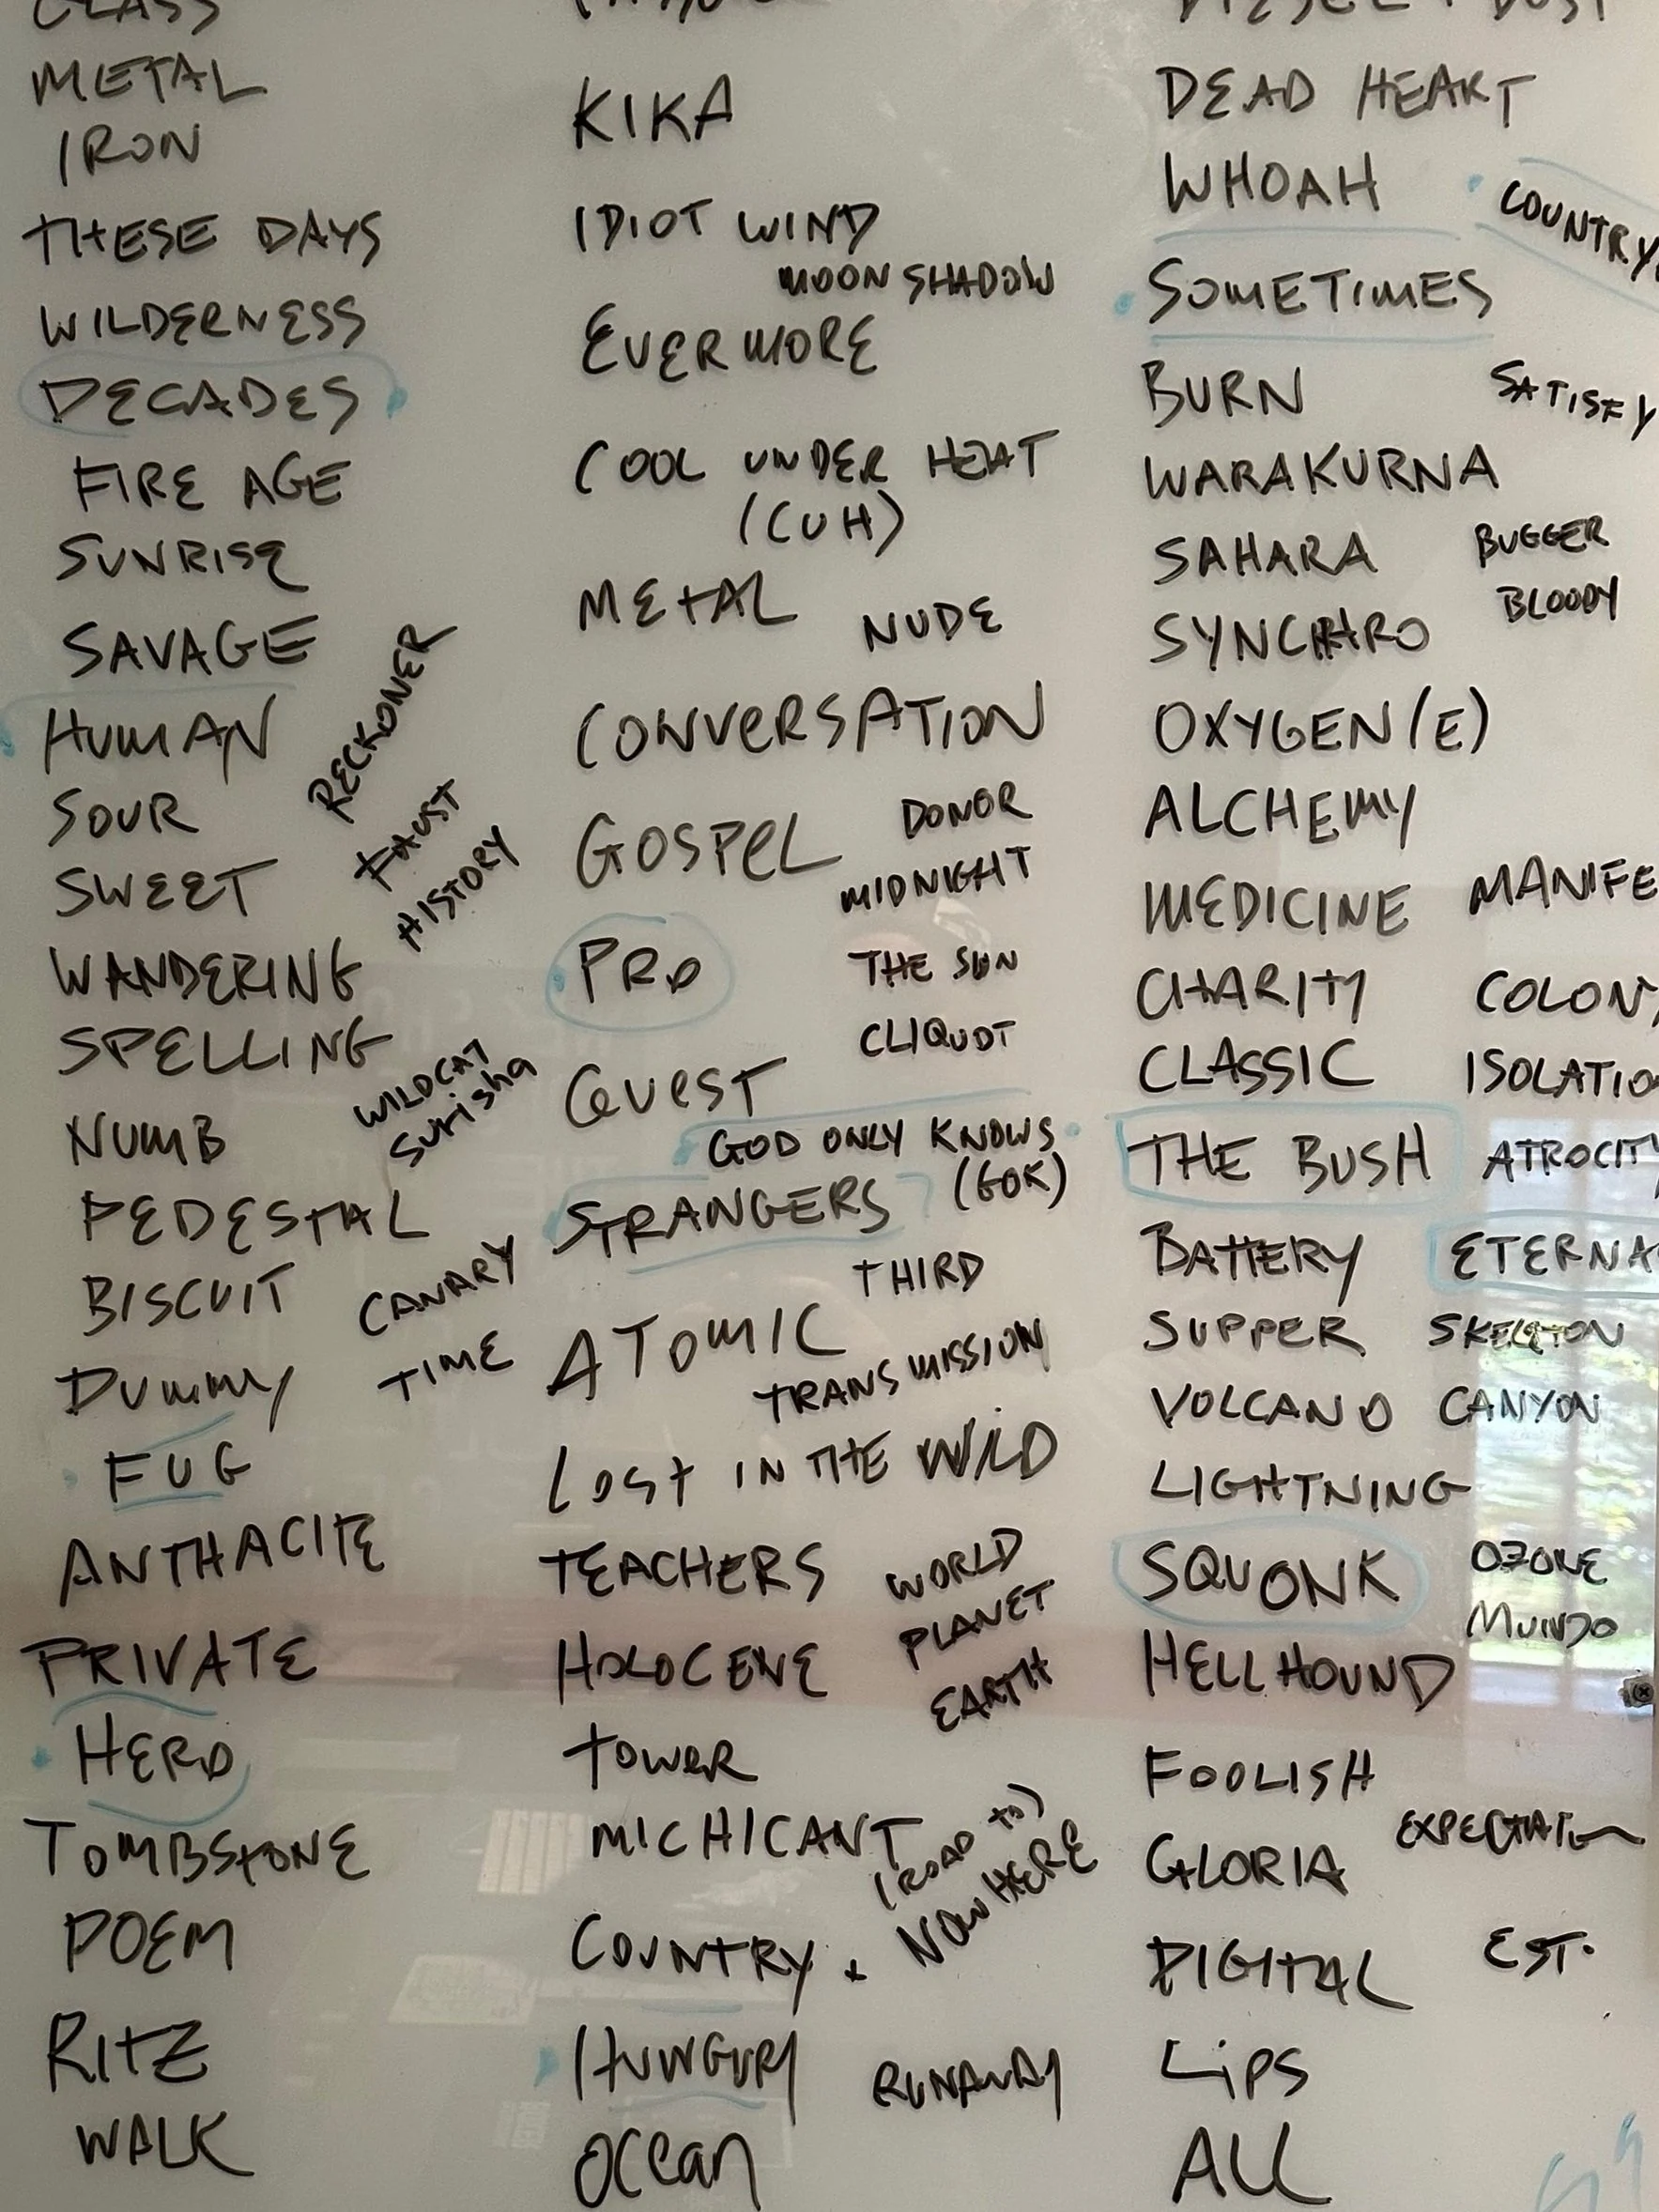 CLASS
METAL
IRON
THESE DAYS
WILDERNESS
DECADES
FIRE AGE
SUNRISE
SAVAGE
HUMAN
RECKONER
SOUR
FAUST
SWEET
HISTORY
WANDERING
SPELLING
WILDCAT
NUMB
PEDESTAL
BISCUIT
CANARY
DUMMY
TIME
FUG
ANTHACITE
PRIVATE
HERO
TOMBSTONE
POEM
RITZ
WALK
KIKA
IDIOT WIND
MOON SHADOW
EVERMORE
COOL UNDER HEAT
(CUH)
METAL
NUDE
CONVERSATION
DONOR
GOSPEL
MIDNIGHT
PRO
THE SUN
CLIQUOT
QUEST
GOD ONLY KNOWS
(GOK)
STRANGERS ?
THIRD
ATOMIC
TRANSMISSION
LOST IN THE WILD
TEACHERS
WORLD
PLANET
HOLOCENE
EARTH
TOWER
MICHICANT
(ROAD TO)
NOWHERE
COUNTRY
HUNGRY
RUNAWAY
OCEAN
DIESEL + DUST
DEAD HEART
WHOAH
COUNTRY
SOMETIMES
BURN
SATISFY
WARAKURNA
SAHARA
BUGGER
BLOODY
SYNCHRO
OXYGEN(E)
ALCHEMY
MEDICINE
MANIFE
CHARITY
COLON
CLASSIC
ISOLATIO
THE BUSH
ATROCITY
BATTERY
ETERNA
SUPPER
SKELETON
VOLCANO
CANYON
LIGHTNING
SQUONK
OZONE
MUNDO
HELLHOUND
FOOLISH
EXPECTATION
GLORIA
DIGITAL
EST.
LIPS
ALL